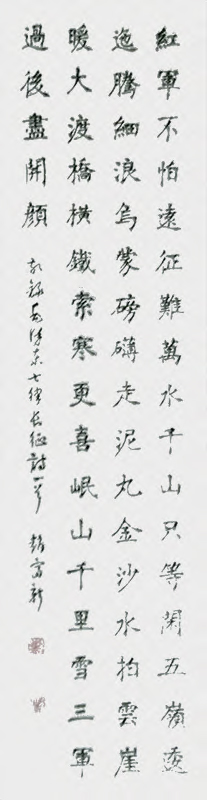 紅軍不怕遠征難萬水千山只等閑五嶺逶
迤騰細浪烏蒙磅礴走泥丸金沙水拍雲崖
暖大渡橋橫鐵索寒更喜岷山千里雪三軍
過後盡開顏
敬錄毛澤東七律長征詩一首 趙富新